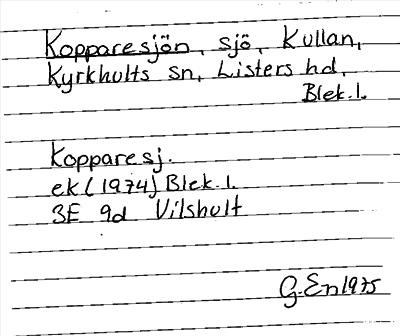 Kopparesjön, sjö, Kullan,
Kyrkhults sn, Listers hd,
Blek. l.
Kopparesj.
ek (1974) Blek. l.
3E 9d Vilshult
G. En 1975